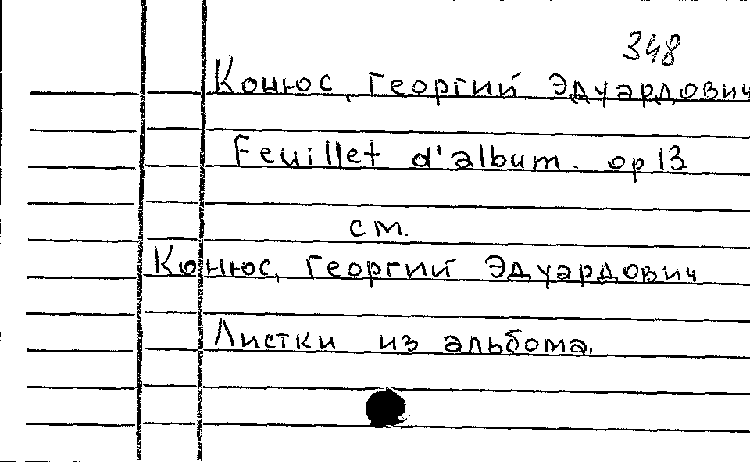 348
Конюс, Георгий Эдуардович
Feuillet d'album. op 13
см.
Конюс, Георгий Эдуардович
Листки из альбома.